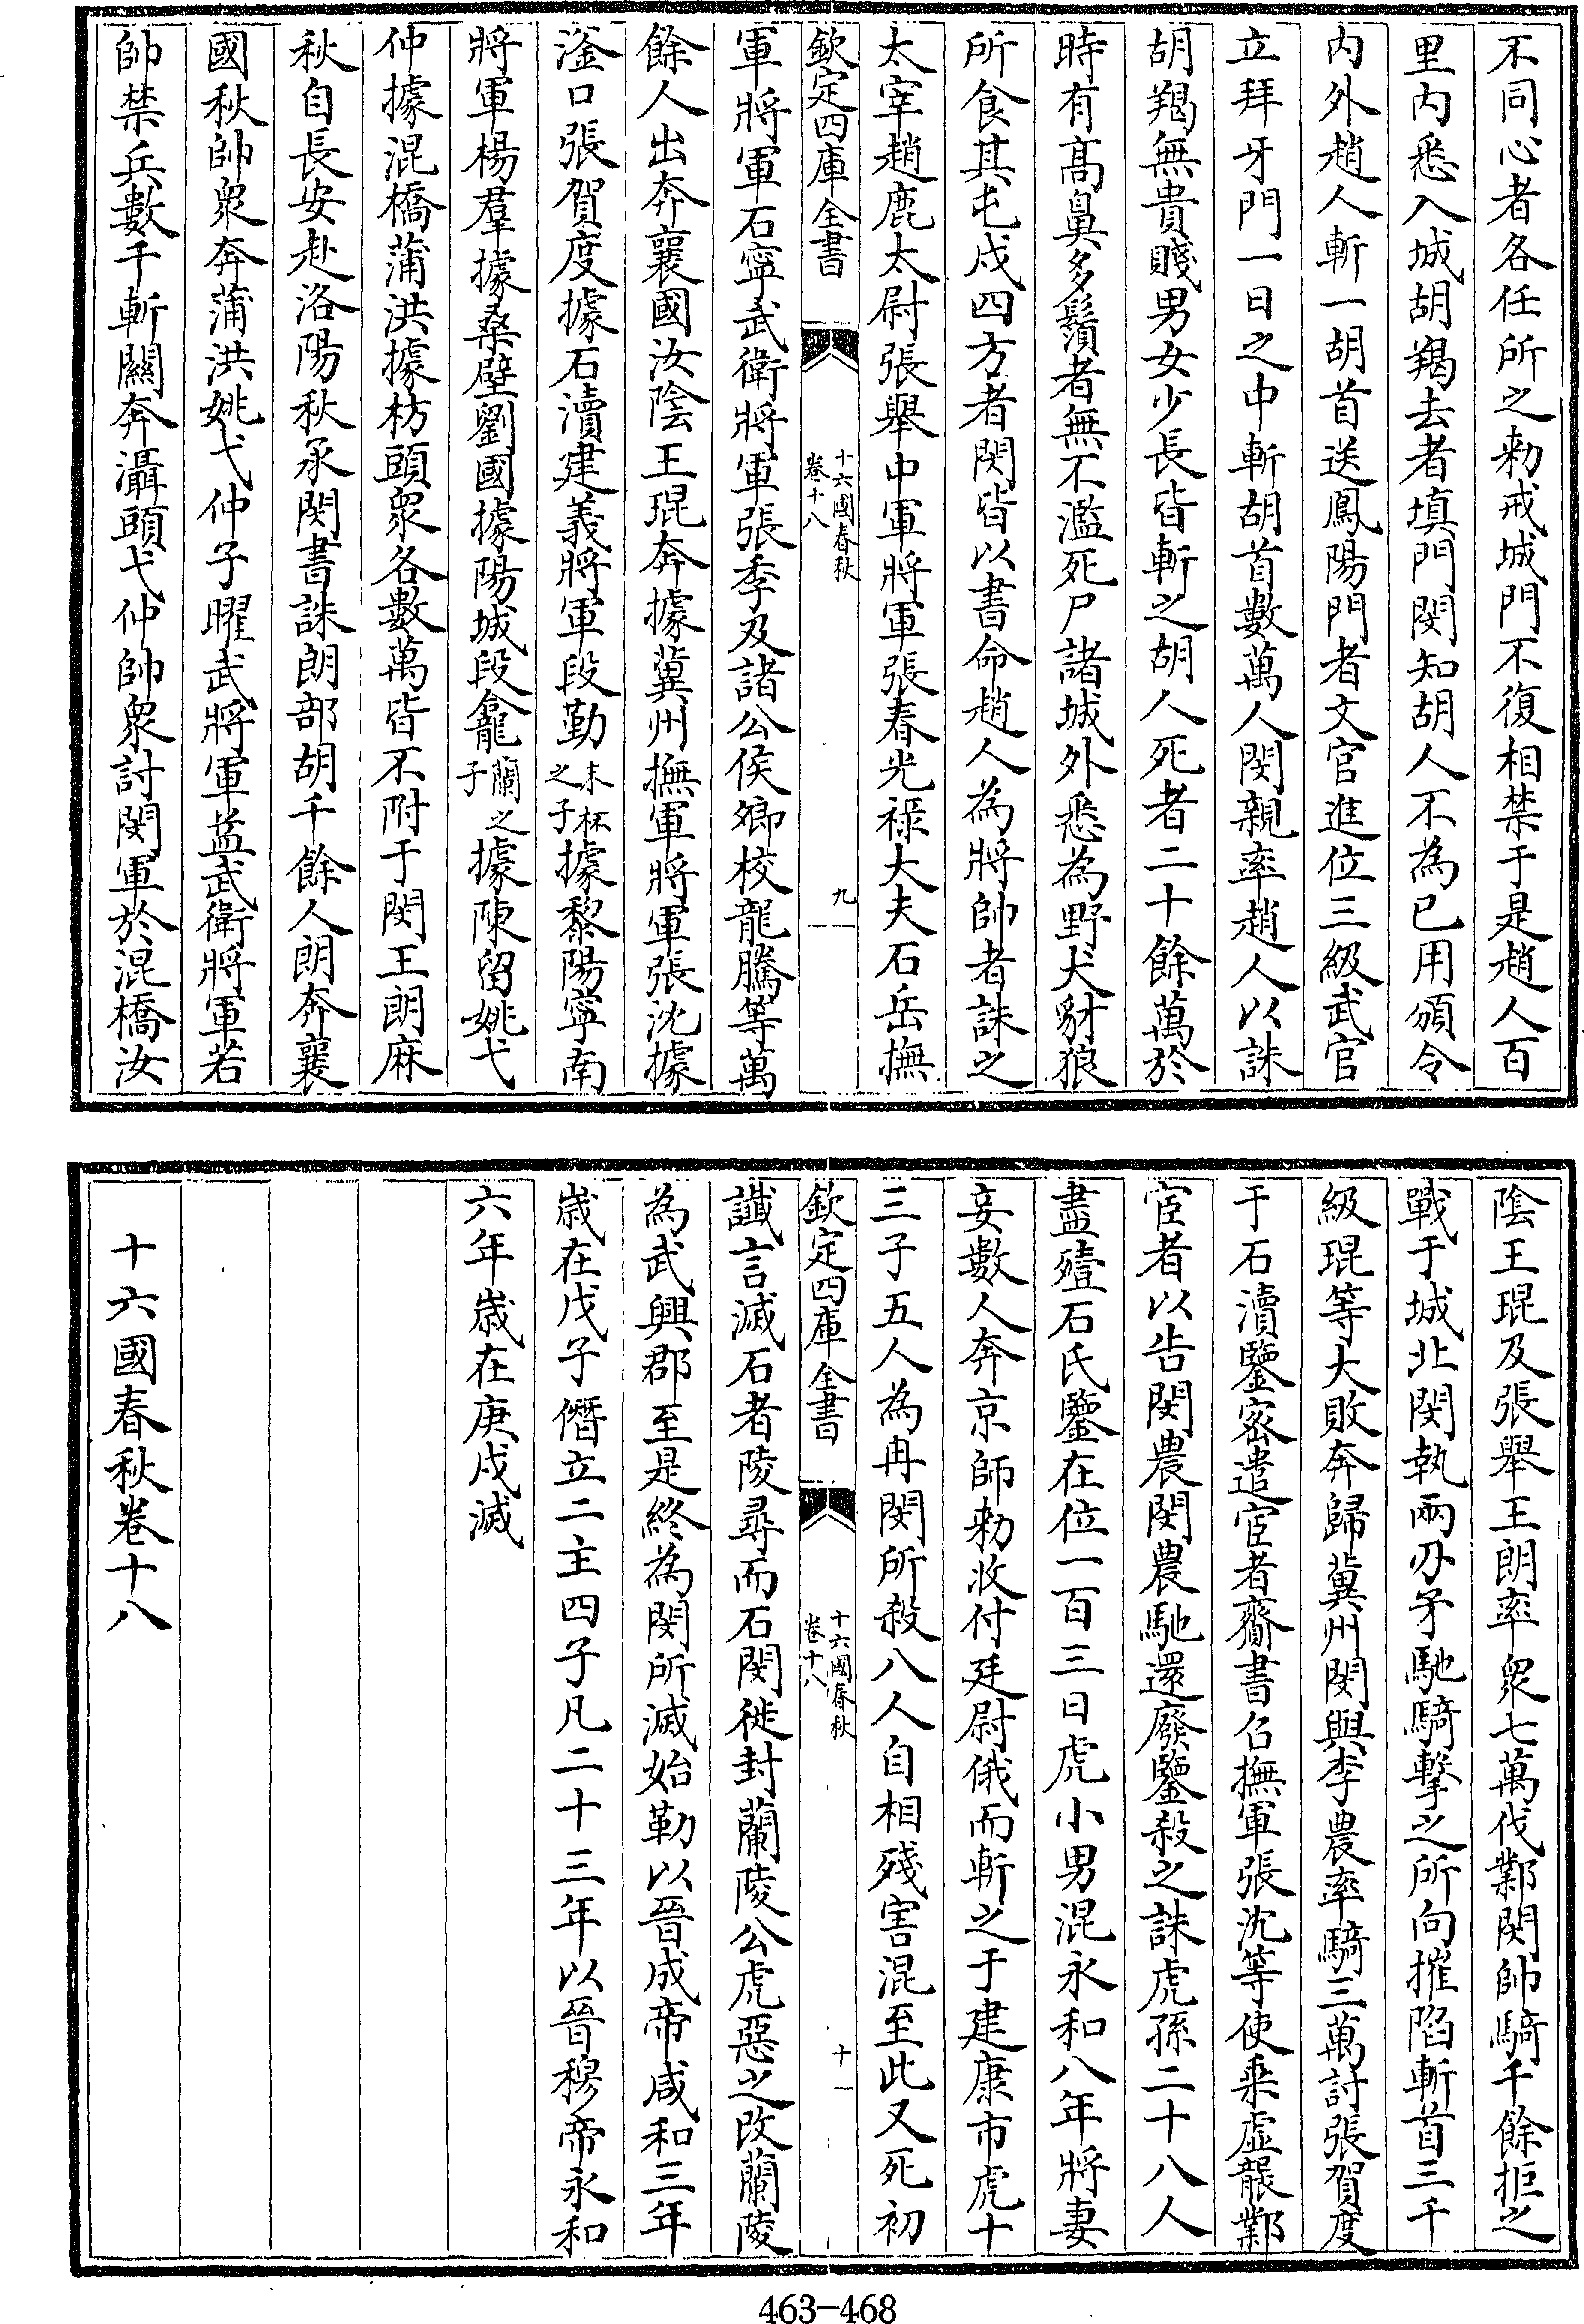 不同心者各任所之勑戒城門不復相禁于是趙人百
里内悉入城胡羯去者填門閔知胡人不為已用頒令
内外趙人斬一胡首送鳳陽門者文官進位三級武官
立拜牙門一日之中斬胡首數萬人閔親率趙人以誅
胡羯無貴賤男女少長皆斬之胡人死者二十餘萬於
時有髙鼻多鬚者無不濫死尸諸城外悉為野犬豺狼
所食其屯戍四方者閔皆以書命趙人為將帥者誅之
太宰趙鹿太尉張舉中軍將軍張春光禄大夫石岳撫
欽定四庫全書
十六國春秋
卷十八
九
軍將軍石寧武衛將軍張季及諸公侯卿校龍騰等萬
餘人出奔襄國汝隂王琨奔據冀州撫軍將軍張沈據
滏口張賀度據石瀆建義將軍段勤末杯之子據黎陽寧南
將軍楊羣據桑壁劉國據陽城段龕蘭之子據陳留姚弋
仲據混橋蒲洪據枋頭衆各數萬皆不附于閔王朗麻
秋自長安赴洛陽秋承閔書誅朗部胡千餘人朗奔襄
國秋帥衆奔蒲洪姚弋仲子曜武將軍益武衛將軍若
帥禁兵數千斬關奔灄頭弋仲帥衆討閔軍於混橋汝
隂王琨及張舉王朗率衆七萬伐鄴閔帥騎千餘拒之
戰于城北閔執兩刃矛馳騎擊之所向摧陷斬首三千
級琨等大敗奔歸冀州閔與李農率騎三萬討張賀度
于石瀆鑒密遣宦者齎書召撫軍張沈等使乘虛襲鄴
宦者以告閔農閔農馳還廢鑒殺之誅虎孫二十八人
盡殪石氏鑒在位一百三日虎小男混永和八年將妻
妾數人奔京師勑收付廷尉俄而斬之于建康市虎十
三子五人為冉閔所殺八人自相殘害混至此又死初
欽定四庫全書
十六國春秋
卷十八
十
讖言滅石者陵尋而石閔徙封蘭陵公虎惡之改蘭陵
為武興郡至是終為閔所滅始勒以晉成帝咸和三年
嵗在戊子僭立二主四子凡二十三年以晉穆帝永和
六年嵗在庚戌滅
十六國春秋卷十八
463-468